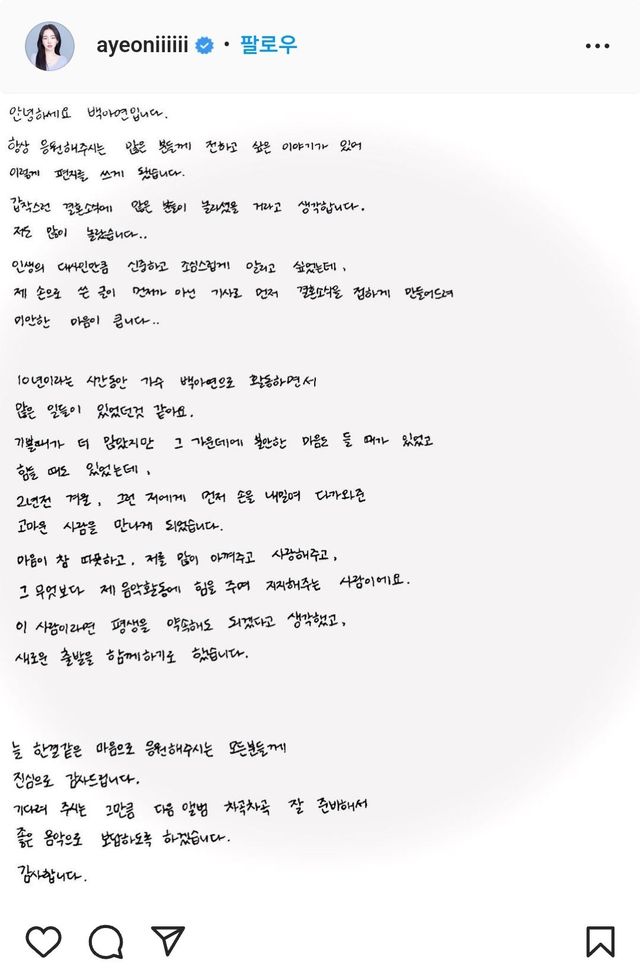 ayeoniiiiii • 팔로우
안녕하세요 백아연입니다.
항상 응원해주시는 많은 분들께 전하고 싶은 이야기가 있어
이렇게 편지를 쓰게 됐습니다.
갑작스런 결혼소식에 많은 분들이 놀라셨을 거라고 생각합니다.
저도 많이 놀랐습니다..
인생의 대사인만큼 신중하고 조심스럽게 알리고 싶었는데,
제 손으로 쓴 글이 먼저가 아닌 기사로 먼저 결혼소식을 접하게 만들어드려
미안한 마음이 큽니다..
10년이라는 시간동안 가수 백아연으로 활동하면서
많은 일들이 있었던것 같아요.
기쁠때가 더 많았지만 그 가운데에 불안한 마음도 들 때가 있었고
힘들 때도 있었는데,
2년전 겨울, 그런 저에게 먼저 손을 내밀며 다가와준
고마운 사람을 만나게 되었습니다.
마음이 참 따뜻하고, 저를 많이 아껴주고 사랑해주고,
그 무엇보다 제 음악활동에 힘을 주며 지지해주는 사람이에요.
이 사람이라면 평생을 약속해도 되겠다고 생각했고,
새로운 출발을 함께하기로 했습니다.
늘 한결같은 마음으로 응원해주시는 모든분들께
진심으로 감사드립니다.
기다려 주시는 그만큼 다음 앨범 차곡차곡 잘 준비해서
좋은 음악으로 보답하도록 하겠습니다.
감사합니다.